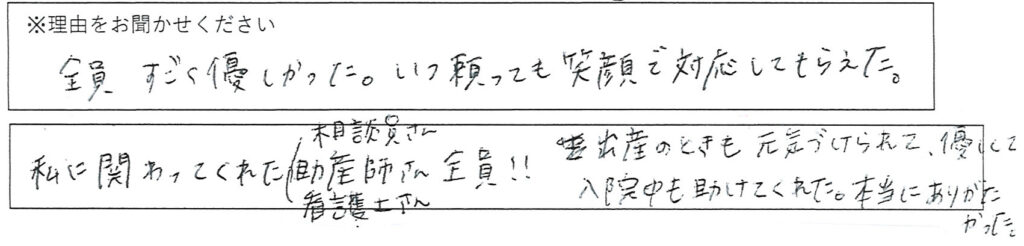 ※理由をお聞かせください
全員 すごく優しかった。いつ頼っても笑顔で対応してもらえた。
相談員さん
私に関わってくれた(助産師さん 全員!!
看護士さん
出産のときも元気づけられて、優しくて
入院中も助けてくれた。本当にありがた
かった。